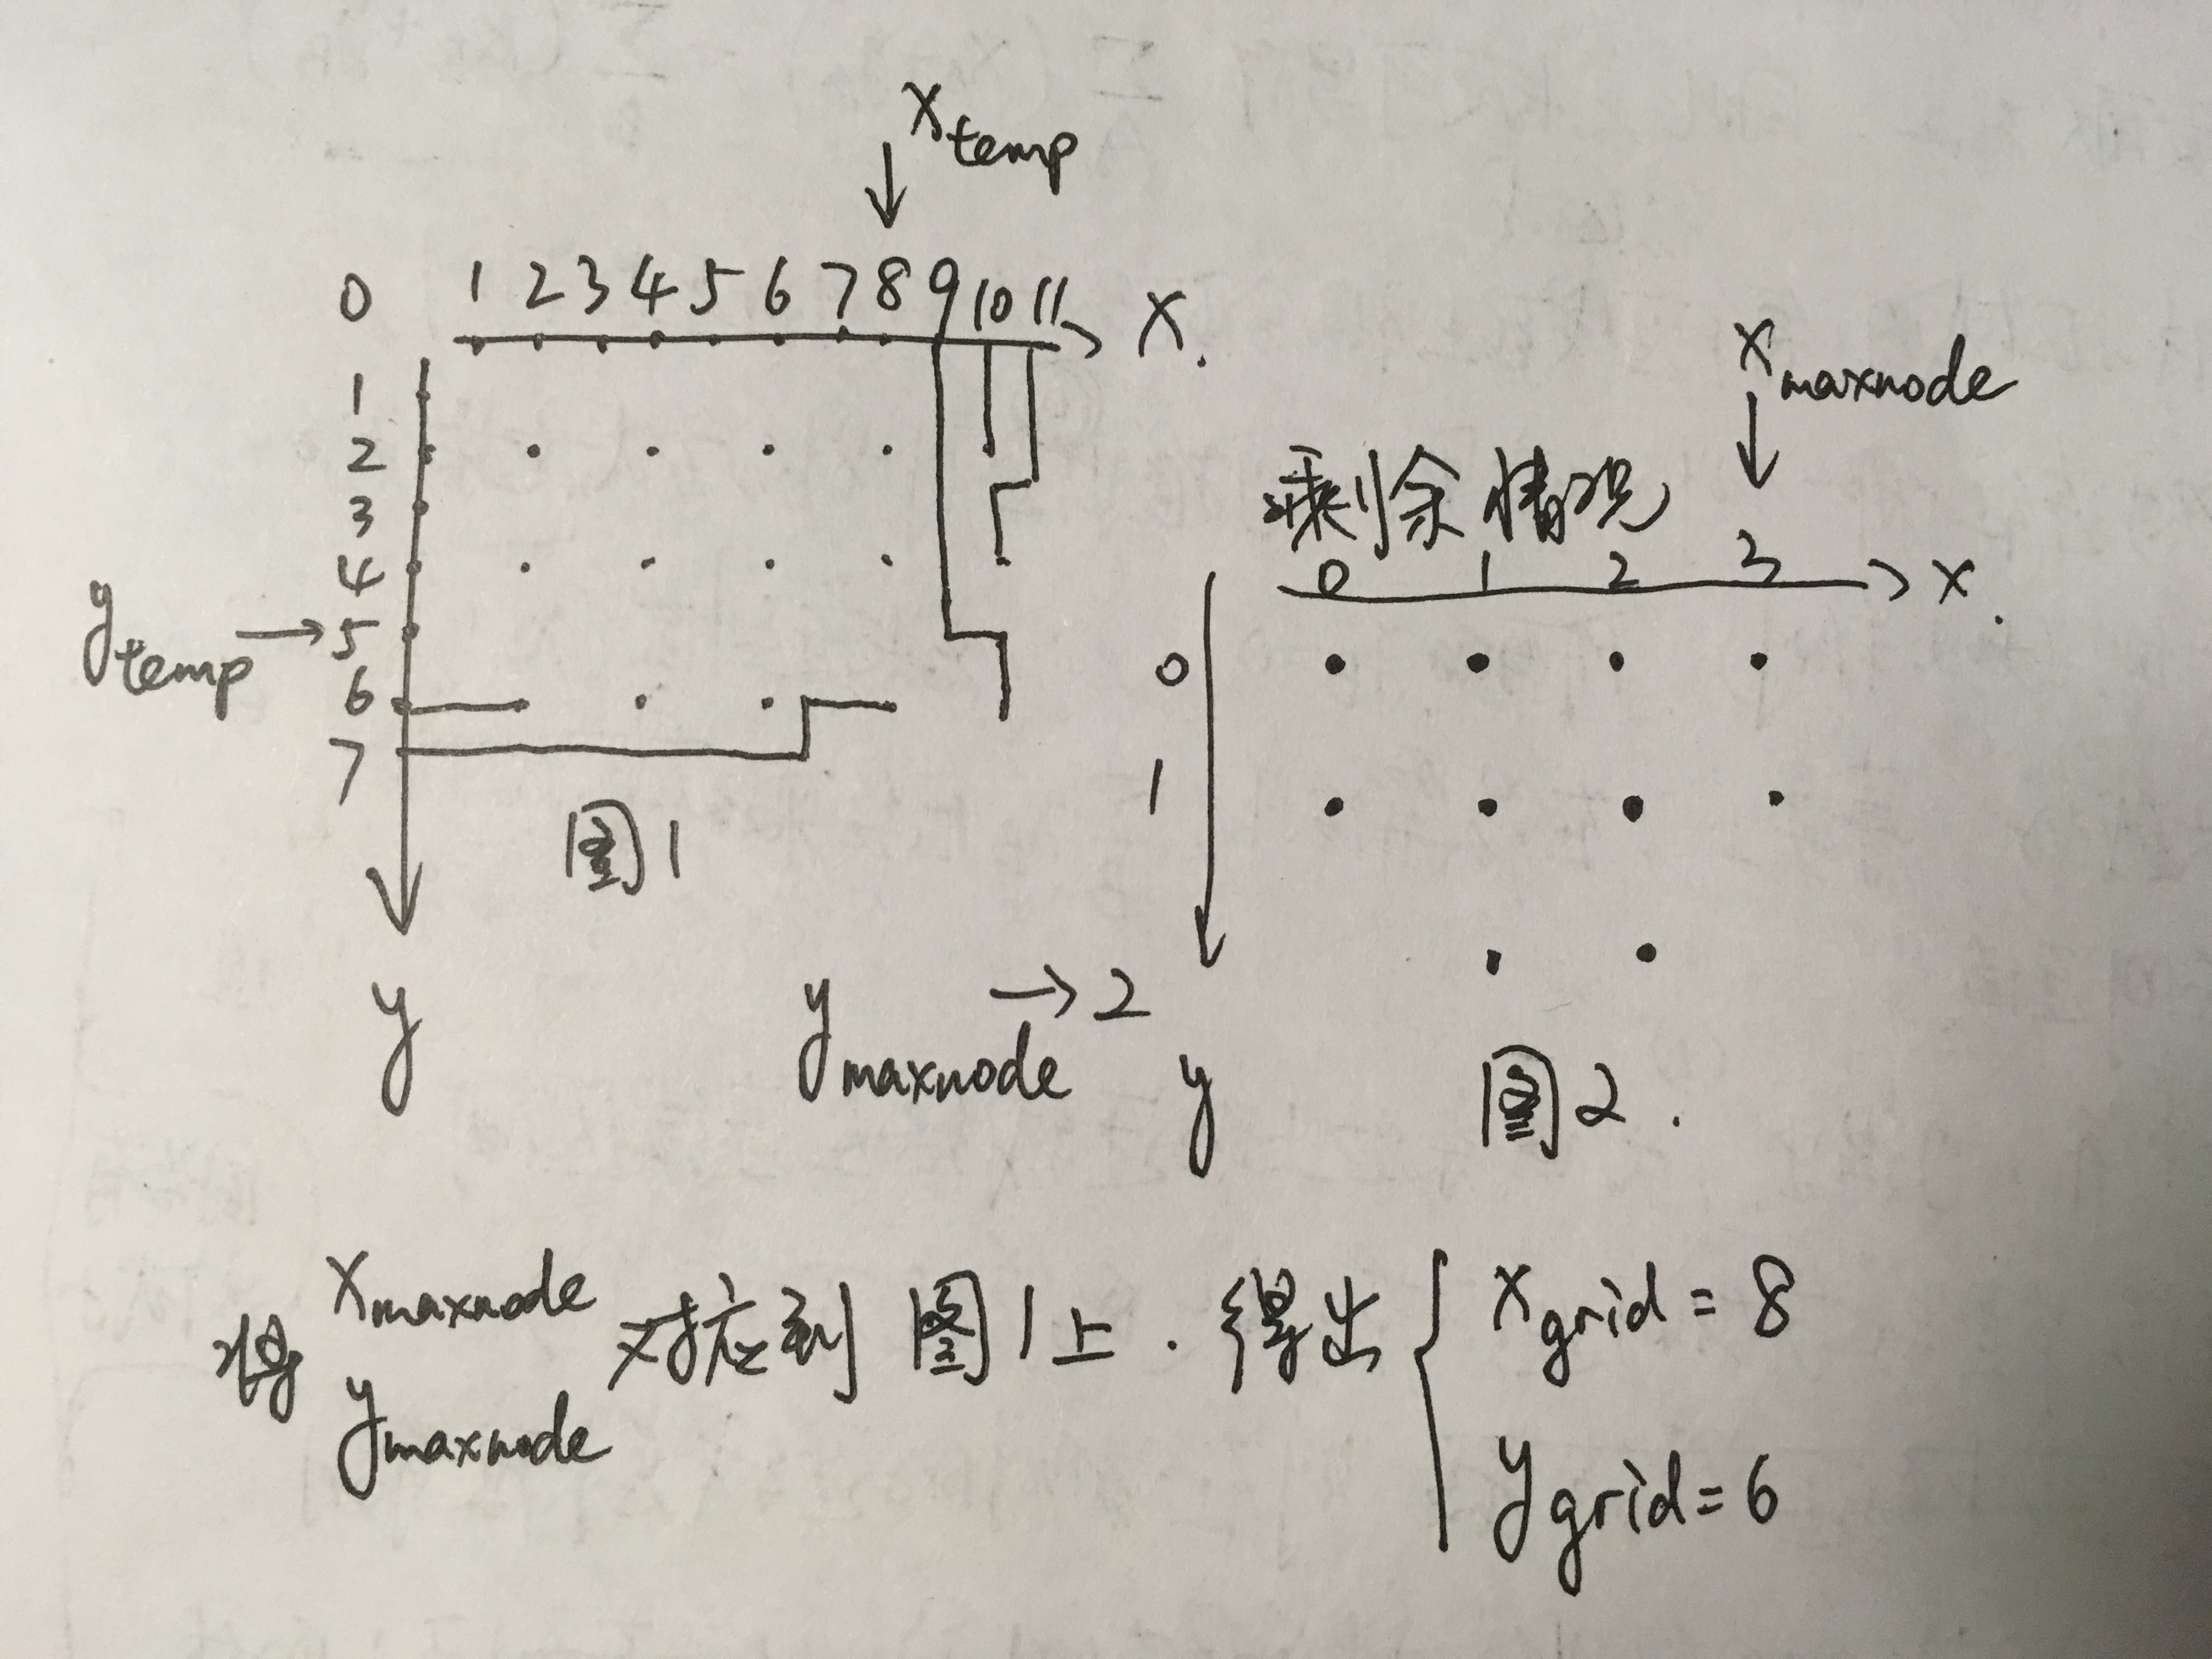 x_temp
0 1 2 3 4 5 6 7 8 9 10 11 x.
1
2
3
4
y_temp → 5
6
7
y
图1
x_maxnode
剩余情况
0 1 2 3 x.
0
1
y_maxnode → 2
y
图2.
将 x_maxnode y_maxnode 对应到 图1上. 得出 { x_grid = 8
y_grid = 6